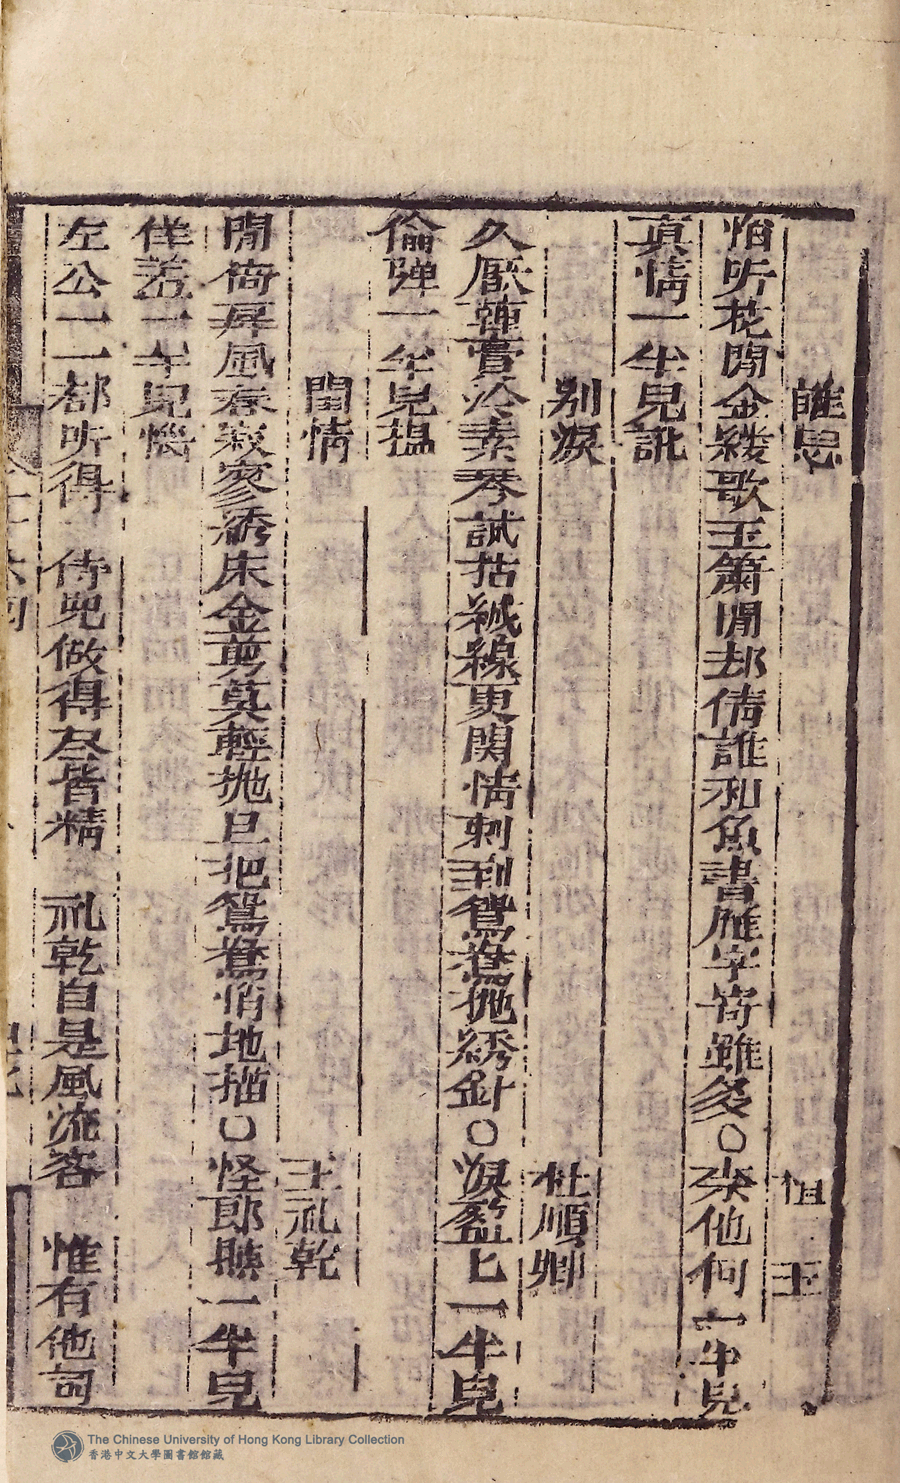 誰思 恒 王
怕听花開金縷歌玉簫閒却倩誰和魚書雁字寄雖多〇來他何一半兒
真情一半兒訛
別淚 杜順卿
久厭薄賣冷素琴試拈絨線更関情刺到鴛鴦抛綉針〇淚盈匕一半兒
偷弾一半兒揾
閨情 王礼乾
閒倚屏風春寂寥綉床金剪莫輕抛且把鴛鴦悄地描〇怪郎瞧一半兒
佯羞一半兒惱
左公一一都听得 侍兒做得尽皆精 礼乾自是風流客 惟有他詞
The Chinese University of Hong Kong Library Collection
香港中文大學圖書館館藏